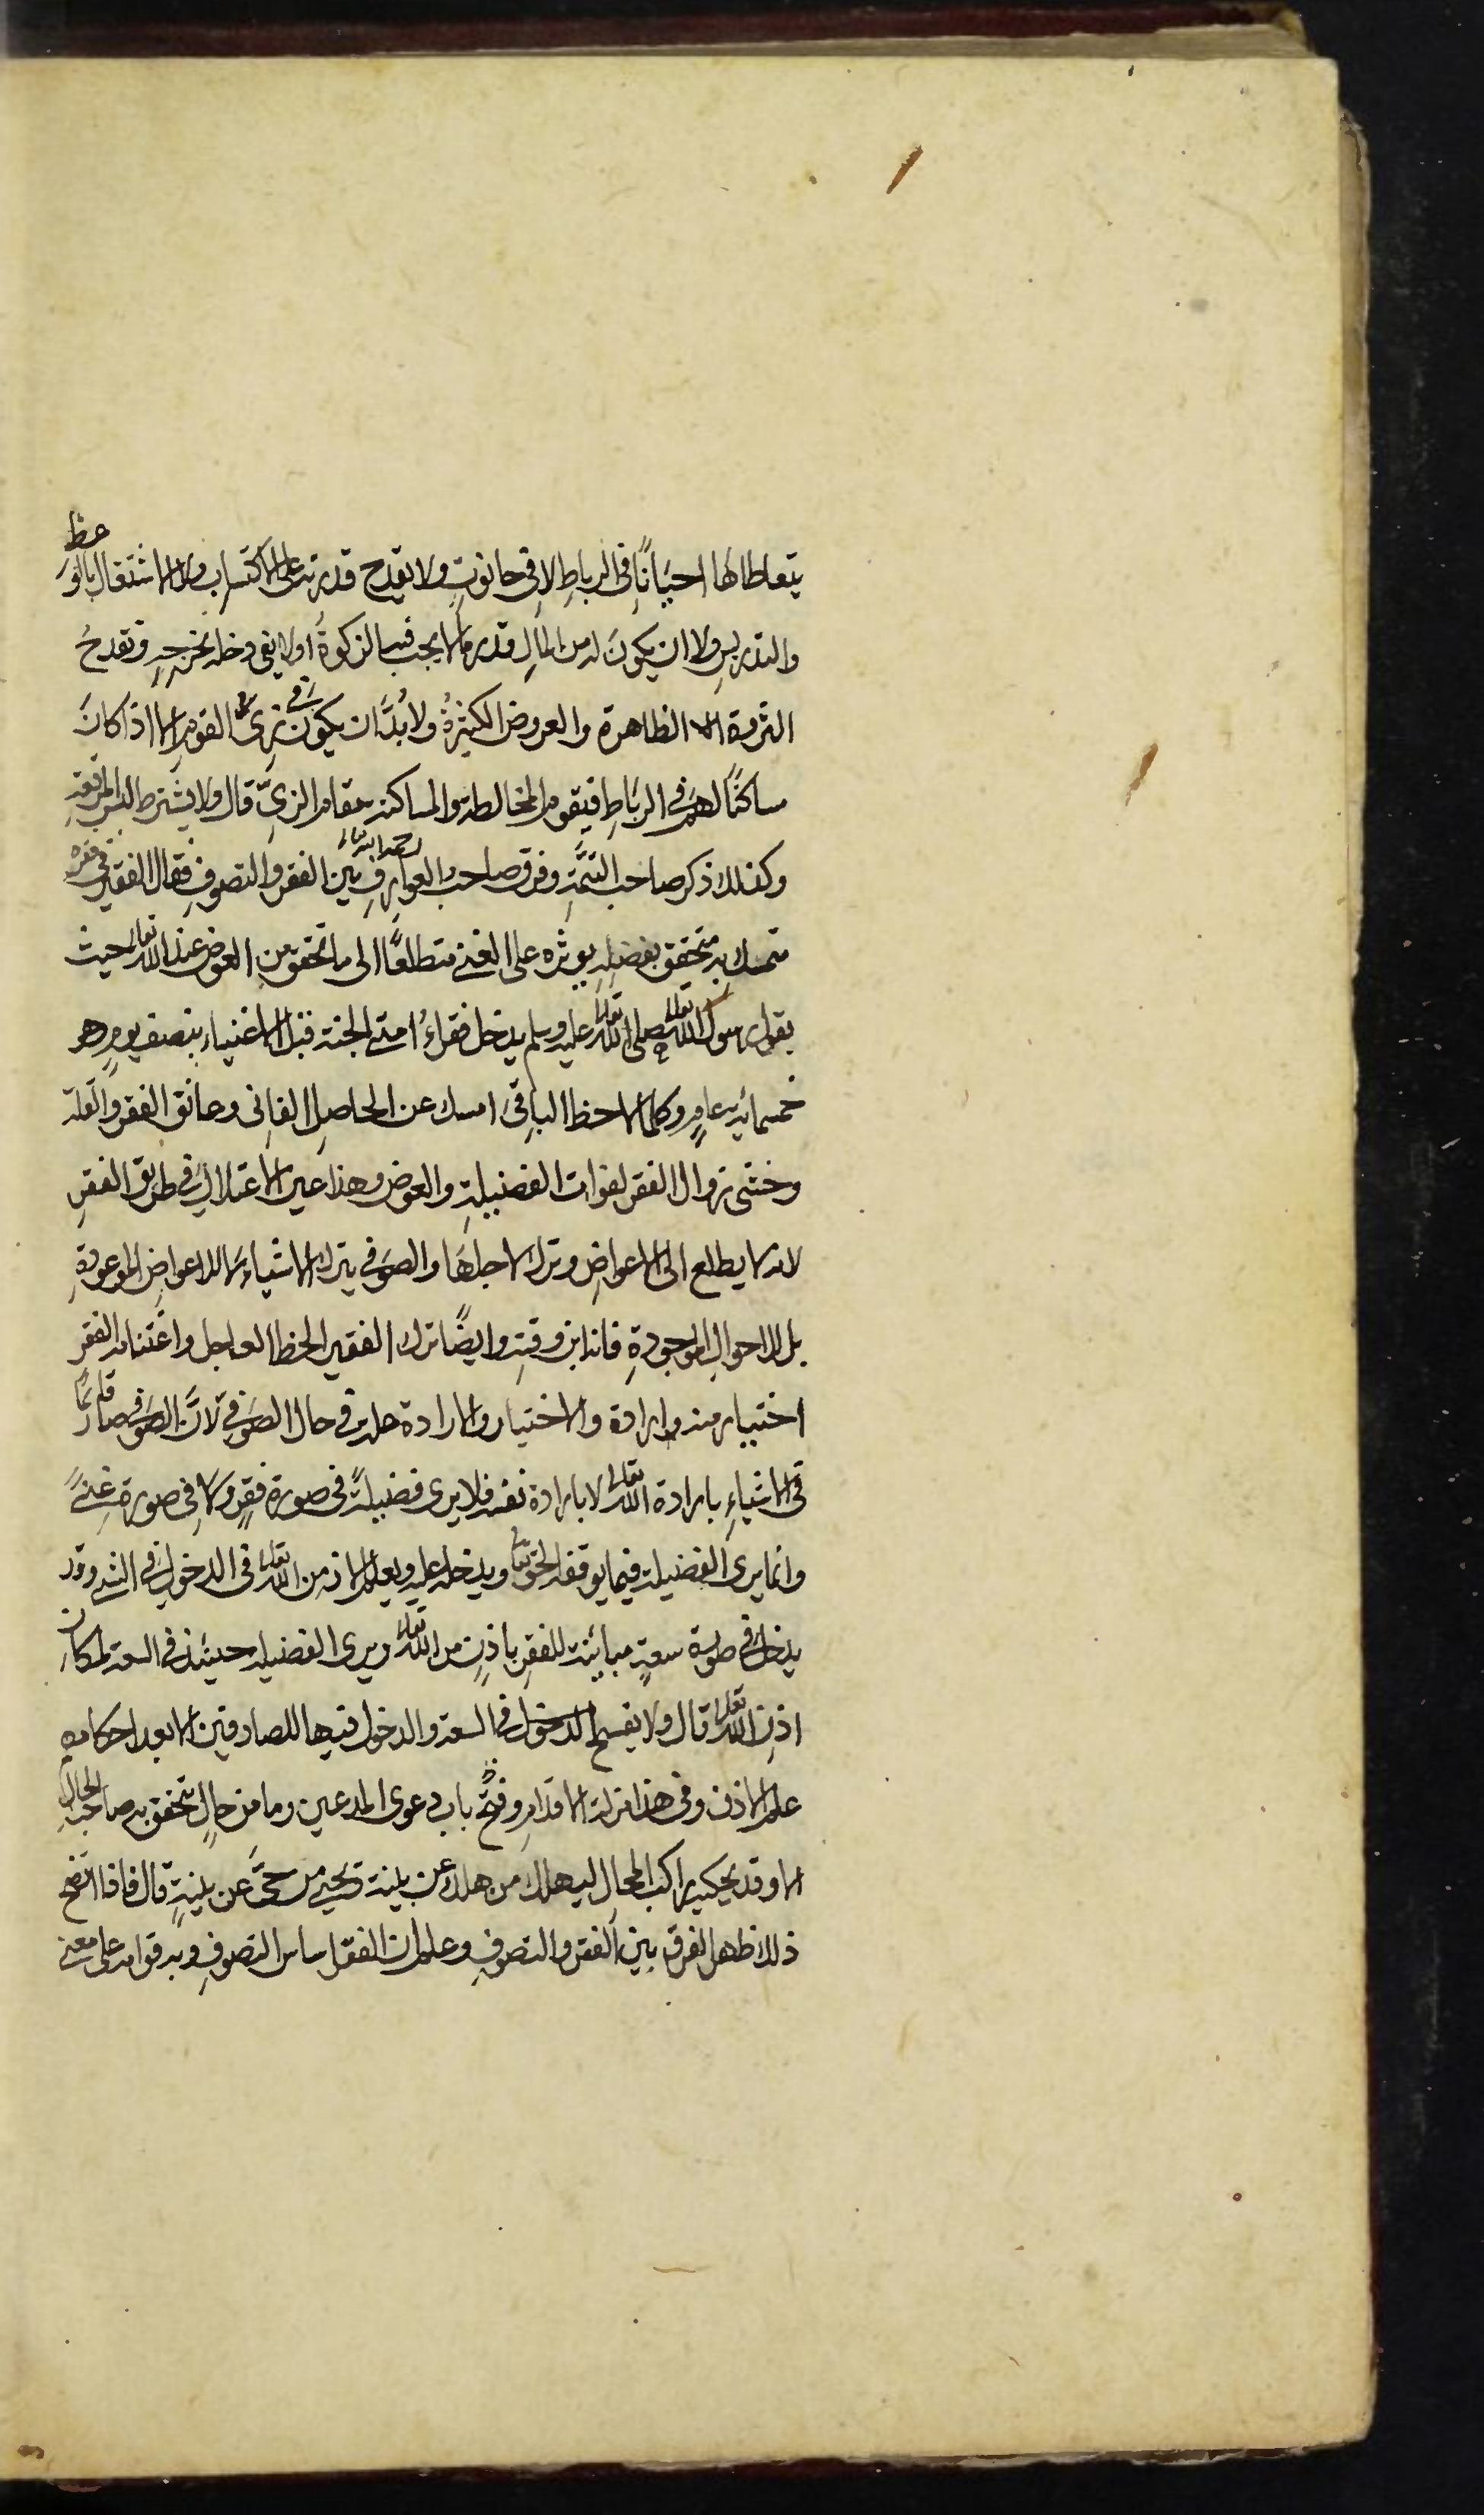 يتعاطاها احيانًا فى الرباطِ لا فى حانوتٍ ولا يقدح قدرته على الاكتساب ولا الاشتغال بالوعظ
والتدريسِ ولا ان يكونَ له من المالِ قدر ما لا يجب فيه الزكوةُ او لا يفى دخله بخرجِهِ وتقدحُ
الثروة الظاهرة والعروض الكثيرةُ ولا بُدَّ ان يكون فى زىّ القومِ الا اذا كانَ
ساكنًا لهم فى الرباطِ فيقوم المخالطة والمساكنة مقام الزىّ قال ولا يشترط لبس المرقعةِ
وكذلك ذكر صاحب التتمَّةِ وفرق صاحب العوارفِ رحمه الله تعالى بين الفقر والتصوفِ فقال الفقير فى فقره
متمسك به متحقق بفضلِهِ يوثره على الغنى متطلعًا الى ما تحقق من العوض عند الله تعالى حيث
يقول رسول الله تعالى صلى الله تعالى عليه وسلم يدخل فقراءُ امتى الجنة قبل الاغنياء بنصف يومٍ هو
خمسمائة عامٍ وكلما لاحظ الباقى امسك عن الحاصلِ الفانى وعانق الفقر والقلة
وخشى زوال الفقر لفوات الفضيلةِ والعوض وهذا عين الاعتلالِ فى طريق الفقرِ
لانه يطلع الى الاعواضِ وترك لاجلها والصوفى يترك الاشياء لا للاعواض الموعودةِ
بل للاحوال الموجودةِ فانه ابن وقتِهِ وايضًا ترك الفقير الحظ العاجل واغتنامه الفقر
اختيار منه وارادة والاختيار والارادة علة فى حال الصوفى لانَّ الصوفى صار قائما
فى الاشياءِ بارادة الله تعالى لا بارادة نفسه فلا يرى فضيلةً فى صورة فقرٍ ولا فى صورة غنىً
وانما يرى الفضيلة فيما يوقفه الحق تعالى ويدخله عليه ويعلم الاذن من الله تعالى فى الدخول فى الشئ وقد
يدخل فى صورة سعةٍ مباينة للفقر باذنٍ من الله تعالى ويرى الفضيلة حينئذ فى السعة لمكان
اذن الله تعالى قال ولا يفسح الدخول فى السعة والدخول فيها للصادقين الا بعد احكامهِ
علم الاذن وفى هذا مزلة الاقدامِ وفتح باب دعوى المدعين وما من حالٍ يتحقق به صاحب الحالِ
الا وقد يحكيه راكب المحالِ ليهلك من هلك عن بينة ويحيى من حىَّ عن بينةٍ قال فاذا اتضح
ذلك ظهر الفرق بين الفقر والتصوفِ وعلم ان الفقر اساس التصوفِ وبه قوامه على معنى